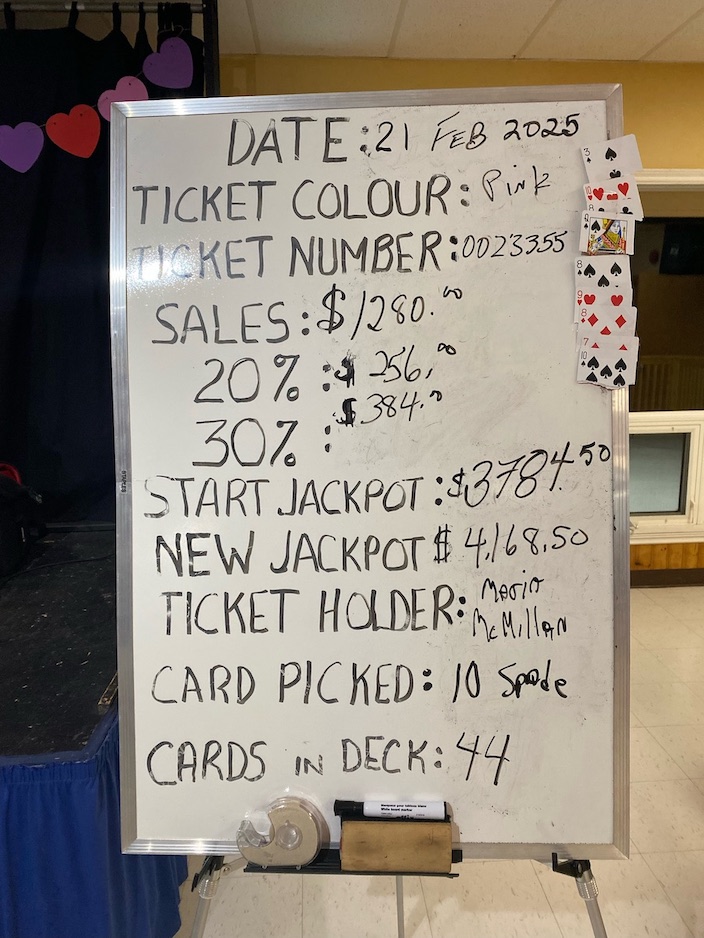 DATE: 21 FEB 2025
TICKET COLOUR: Pink
TICKET NUMBER: 0023355
SALES: $1280.00
20% : $256.00
30% : $384.00
START JACKPOT: $3784.50
NEW JACKPOT $4,168.50
TICKET HOLDER: Mario
McMillan
CARD PICKED: 10 Spade
CARDS IN DECK: 44
3
10
8
Q
8
9
8
7
10